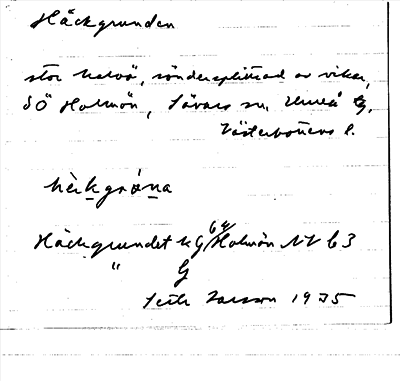 Häckgrunden
stor halvö, söndersplittrad av vikar,
SÖ Holmön, Sävars sn, Umeå tg,
Västerbottens l.
hèkgrɷ́na
Häckgrundet kG 64 Holmön NV b3
" G
Larsson 1935